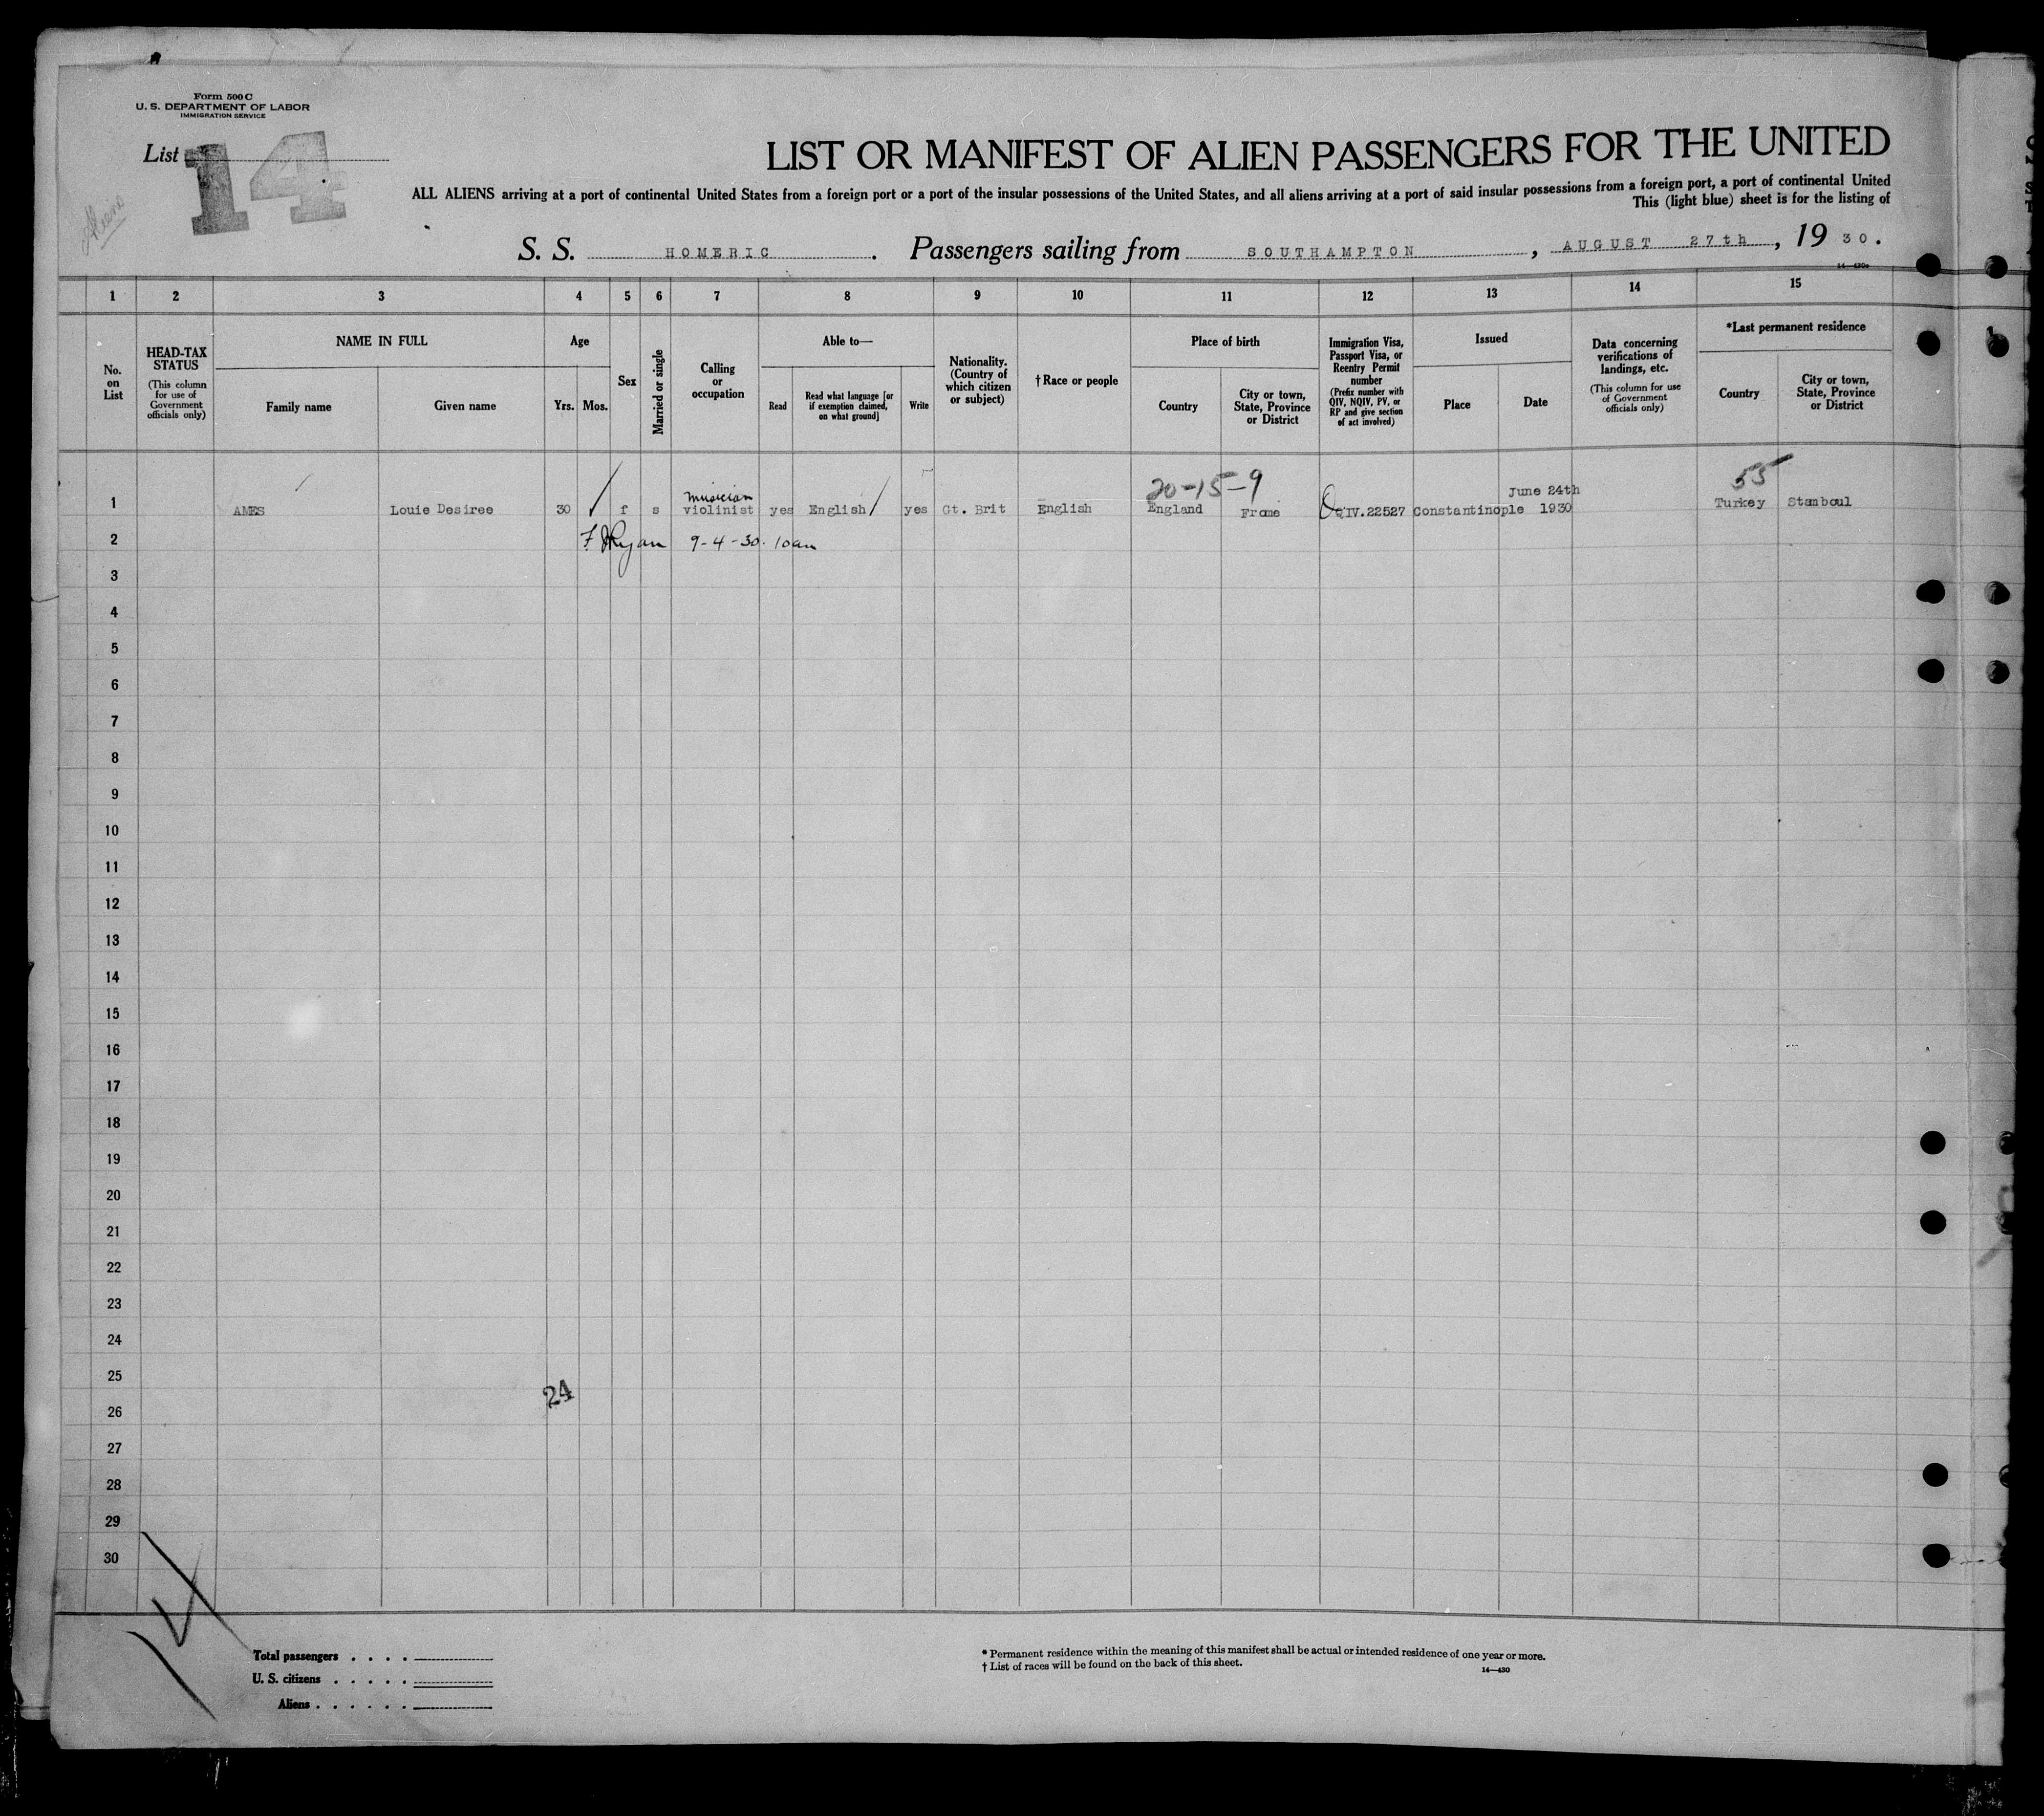 Form 500 C
U. S. DEPARTMENT OF LABOR
IMMIGRATION SERVICE
List 14
Aliens
LIST OR MANIFEST OF ALIEN PASSENGERS FOR THE UNITED
ALL ALIENS arriving at a port of continental United States from a foreign port or a port of the insular possessions of the United States, and all aliens arriving at a port of said insular possessions from a foreign port, a port of continental United
This (light blue) sheet is for the listing of
S. S. HOMERIC. Passengers sailing from SOUTHAMPTON, AUGUST 27th, 1930.
14—430a
1 2 3 4 5 6 7 8 9 10 11 12 13 14 15
No. on List
HEAD-TAX STATUS
(This column for use of Government officials only)
NAME IN FULL
Family name
Given name
Age
Yrs. Mos.
Sex
Married or single
Calling or occupation
Able to—
Read
Read what language [or if exemption claimed, on what ground]
Write
Nationality. (Country of which citizen or subject)
† Race or people
Place of birth
Country
City or town, State, Province or District
Immigration Visa, Passport Visa, or Reentry Permit number
(Prefix number with QIV, NQIV, PV, or RP and give section of act involved)
Issued
Place
Date
Data concerning verifications of landings, etc.
(This column for use of Government officials only)
*Last permanent residence
Country
City or town, State, Province or District
musician 20-15-9 June 24th 55
1 AMES Louie Desiree 30 f s violinist yes English yes Gt. Brit English England Frome QIV.22527 Constantinople 1930 Turkey Stamboul
2 F. J. Ryan 9-4-30. 10am
3
4
5
6
7
8
9
10
11
12
13
14
15
16
17
18
19
20
21
22
23
24
25
24
26
27
28
29
30
14
Total passengers
U. S. citizens
Aliens
* Permanent residence within the meaning of this manifest shall be actual or intended residence of one year or more.
† List of races will be found on the back of this sheet.
14—430